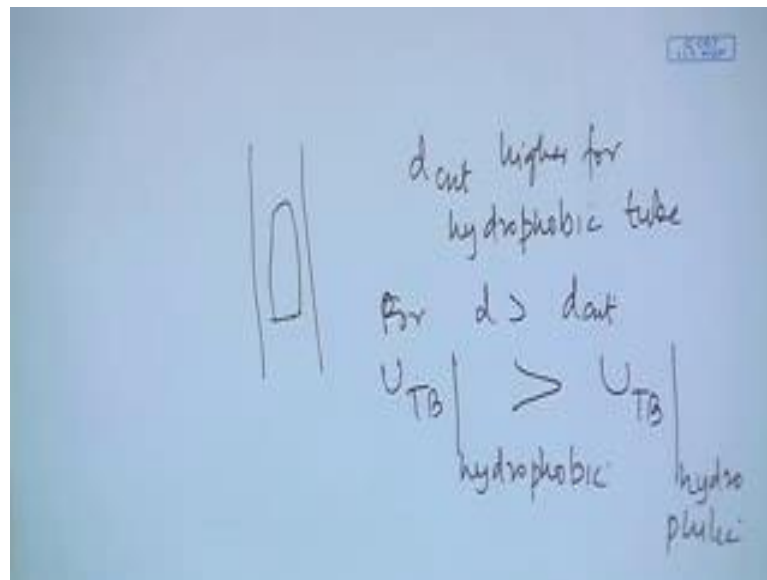 d crit higher for
hydrophobic tube
For d > d crit
U TB | > U TB |
hydrophobic hydro
philic